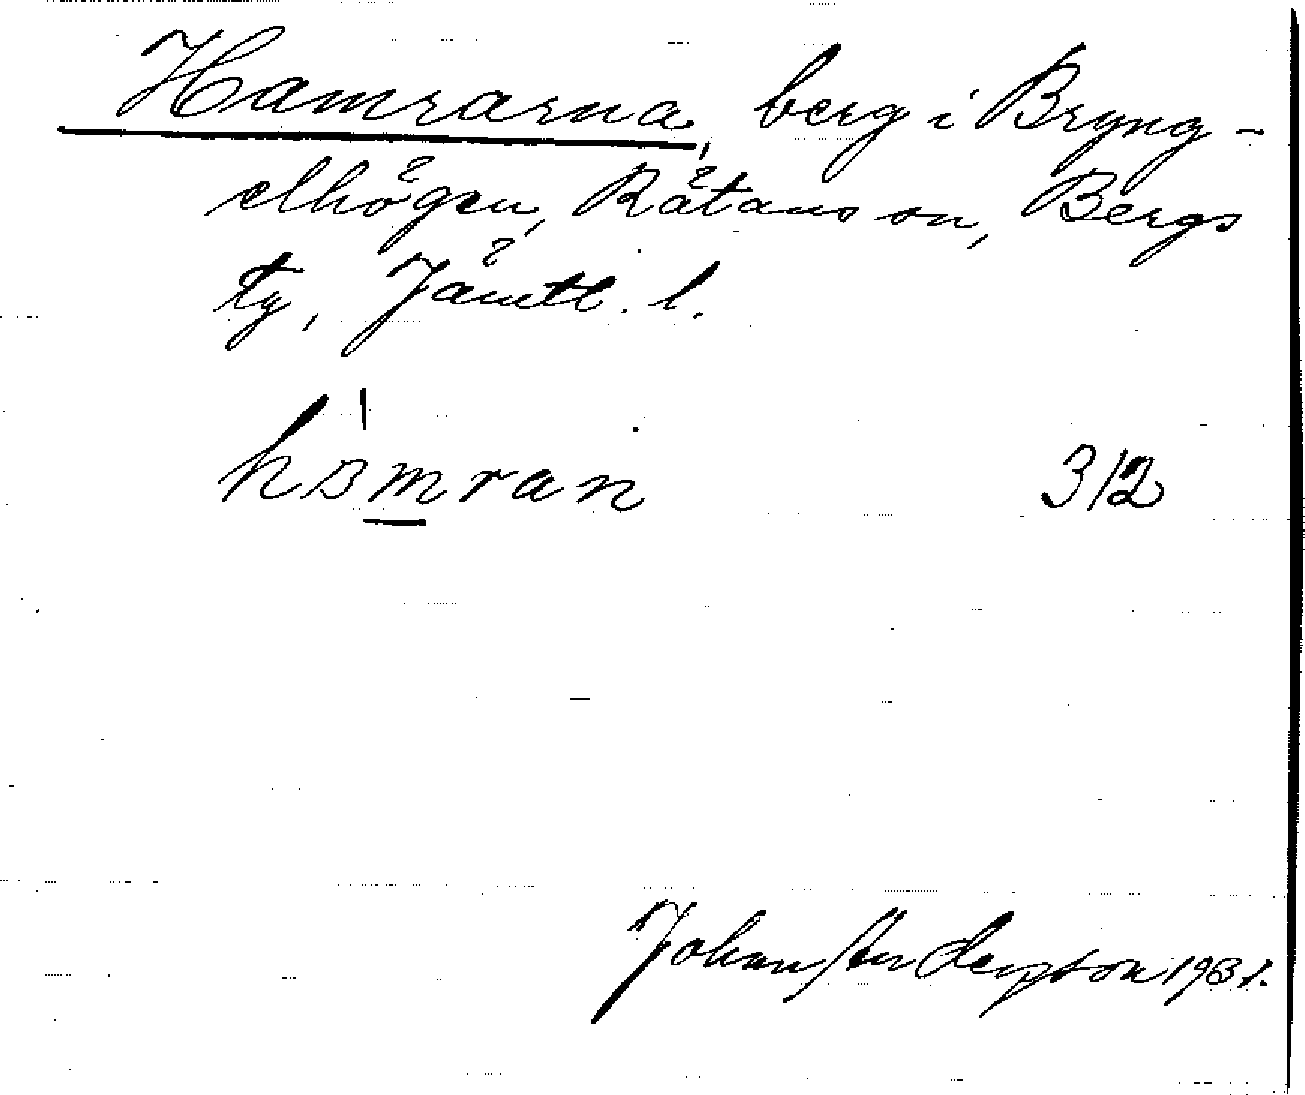 Hamrarna, berg i Bryng-
elhögen, Rätans sn, Bergs
tg, Jämtl. l.
hɜmran 3/2
Johan Anderzson 1931.